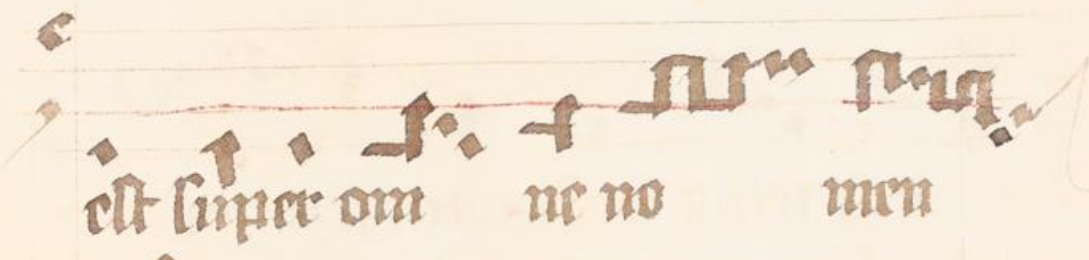 est super om ne no men